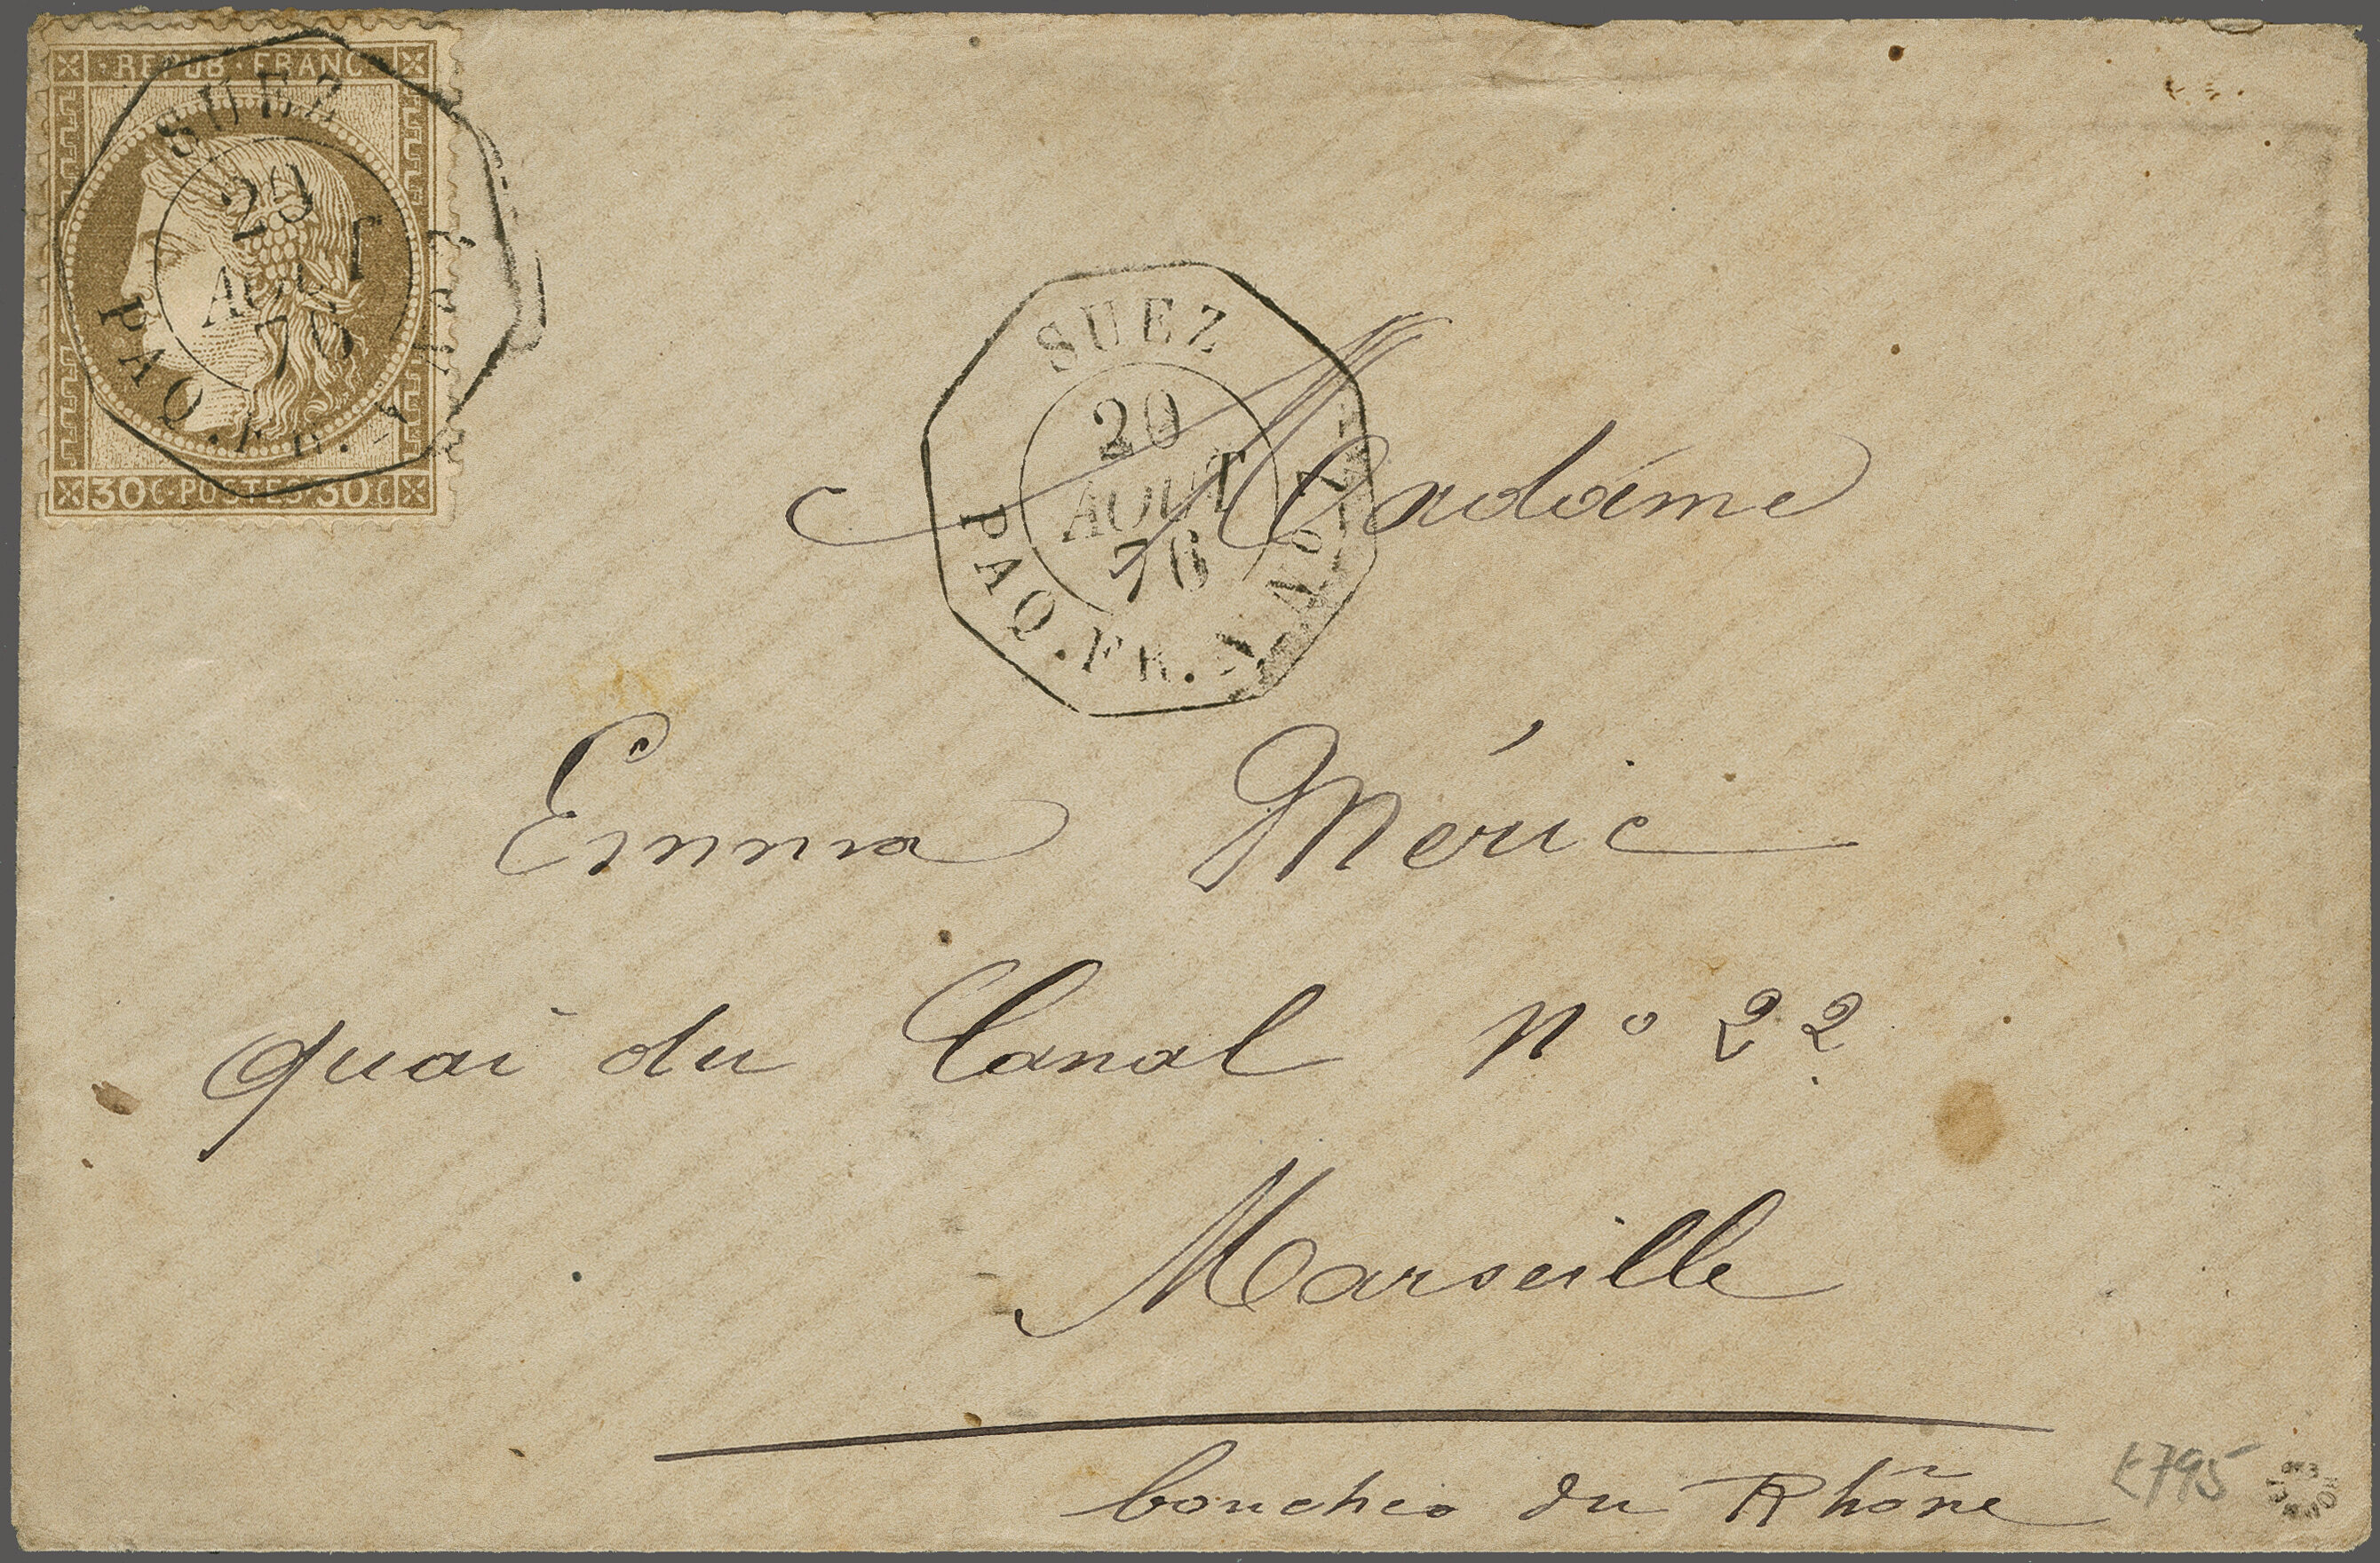 REPUB·FRANC
SUEZ
20
AOUT
76
PAQ.FR.
30C·POSTES·30C
SUEZ
20
AOUT
76
PAQ.FR.
Madame
Emma Méric
quai du Canal N° 22
Marseille
bouches du Rhône
t795